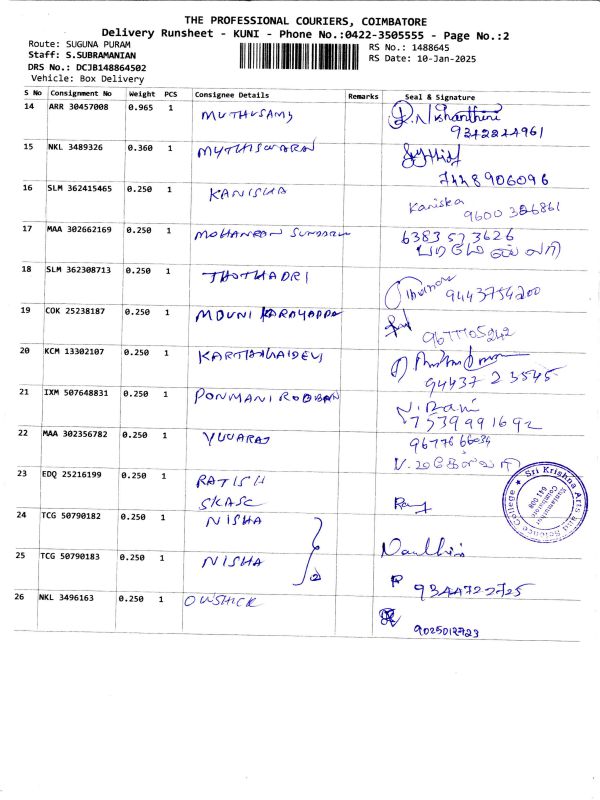 THE PROFESSIONAL COURIERS, COIMBATORE
Delivery Runsheet - KUNI - Phone No.:0422-3505555 - Page No.:2
Route: SUGUNA PURAM
RS No.: 1488645
Staff: S.SUBRAMANIAN
RS Date: 10-Jan-2025
DRS No.: DCJB148864502
Vehicle: Box Delivery
S No Consignment No Weight PCS Consignee Details Remarks Seal & Signature
14 ARR 30457008 0.965 1 MUTHUSAMY
9342244961
15 NKL 3489326 0.360 1 MYTHISWARAN
7448906096
16 SLM 362415465 0.250 1 KANISHA Kaniska
9600 326861
17 MAA 302662169 0.250 1 MOHANRAN SUNDARU 6383573626
பரமேஸ்வரி
18 SLM 362308713 0.250 1 THOTHADRI
9443754200
19 COK 25238187 0.250 1 MOUNI KARAYAPPA
9677105242
20 KCM 13302107 0.250 1 KARTHIKAIDEVI
94437 23545
21 IXM 507648831 0.250 1 PONMANI ROOBAN N. Rani
7539991692
22 MAA 302356782 0.250 1 YUVARAJ 9677666034
23 EDQ 25216199 0.250 1 RATISH
SKASC
Sri Krishna Arts and Science College
Kuniamuthur
Coimbatore
641 008
24 TCG 50790182 0.250 1 NISHA
25 TCG 50790183 0.250 1 NISHA
9344722725
26 NKL 3496163 0.250 1 OWSHICK
9025012723